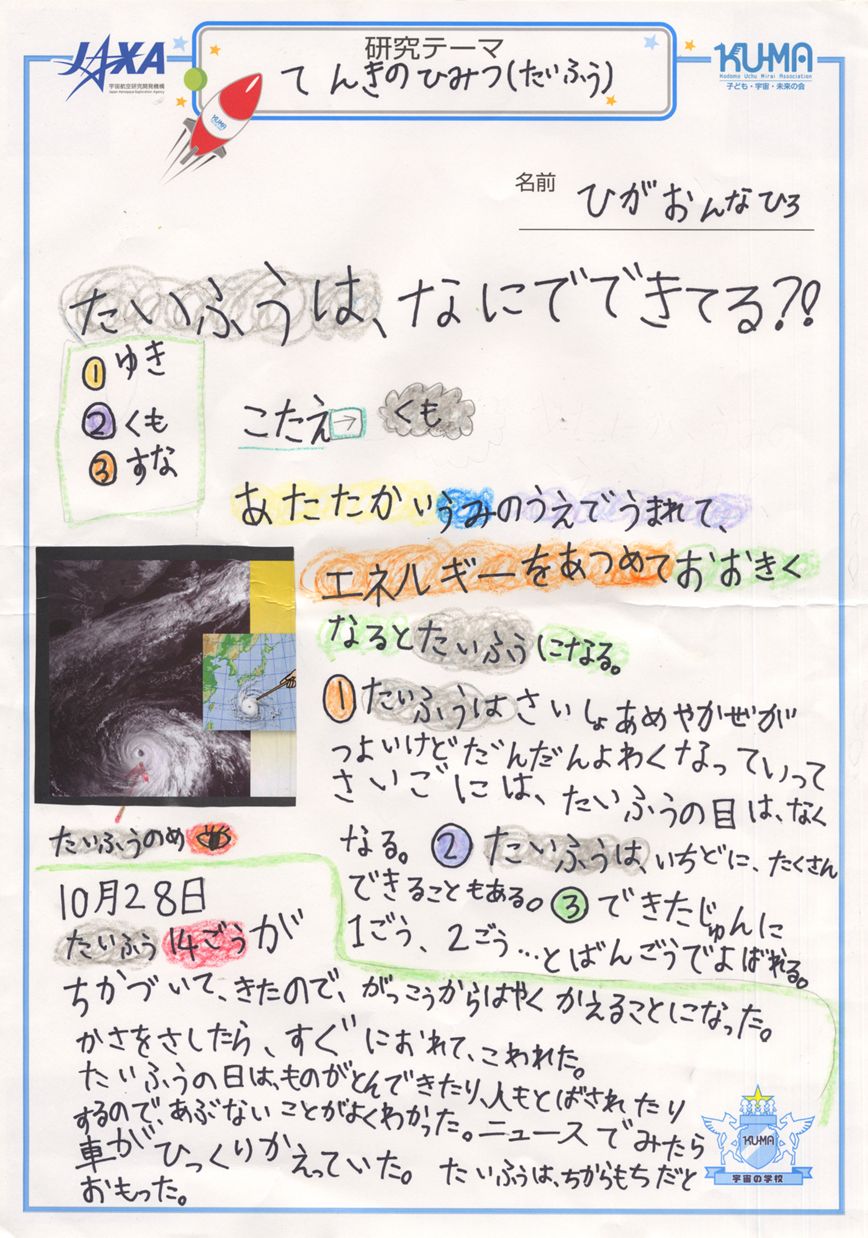 JAXA
宇宙航空研究開発機構
Japan Aerospace Exploration Agency
研究テーマ
てんきのひみつ(たいふう)
KU-MA
Kodomo Uchu Mirai Association
子ども・宇宙・未来の会
KU-MA
名前 ひがおんなひろ
たいふうは、なにでできてる?!
①ゆき
②くも
③すな
こたえ→くも
あたたかいうみのうえでうまれて、
エネルギーをあつめておおきく
なるとたいふうになる。
①たいふうはさいしょあめやかぜが
つよいけどだんだんよわくなっていって
さいごには、たいふうの目は、なく
なる。②たいふうは、いちどに、たくさん
できることもある。③できたじゅんに
1ごう、2ごう…とばんごうでよばれる。
たいふうのめ
10月28日
たいふう14ごうが
ちかづいて、きたので、がっこうからはやくかえることになった。
かさをさしたら、すぐにおれて、こわれた。
たいふうの日は、ものがとんできたり、人もとばされたり
するので、あぶないことがよくわかった。ニュースでみたら
車がひっくりかえっていた。たいふうは、ちからもちだと
おもった。
KU-MA
宇宙の学校